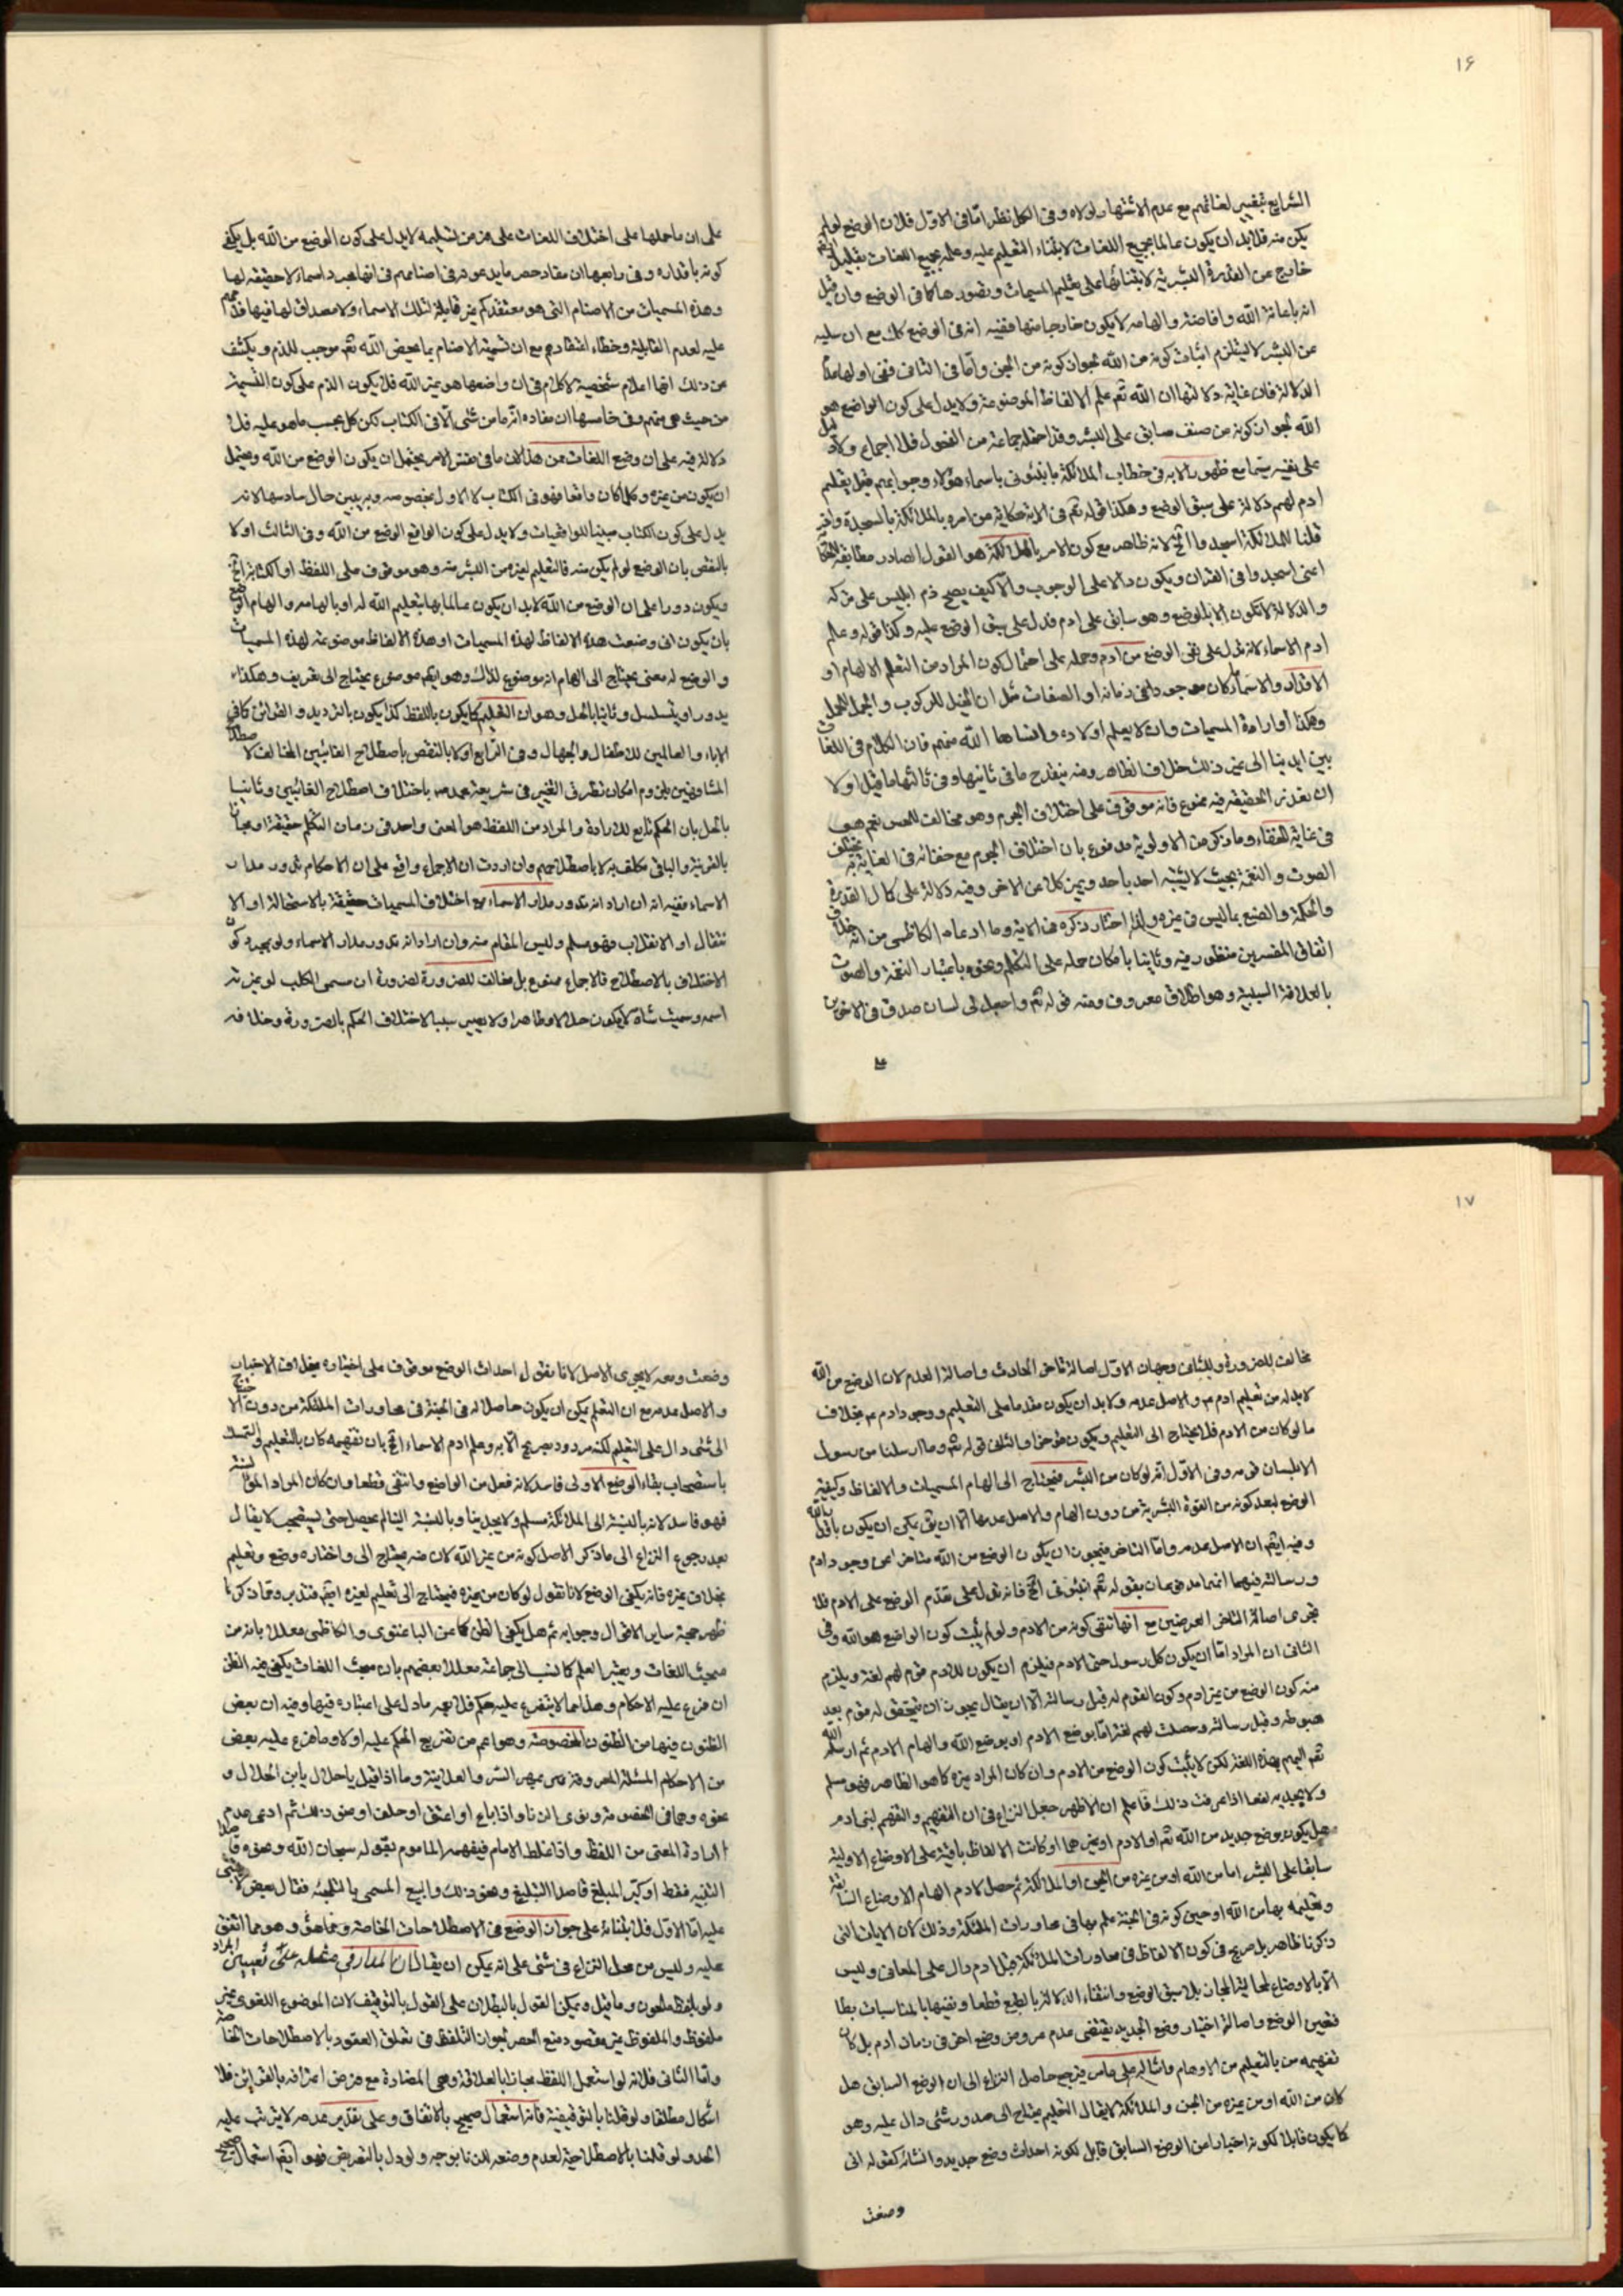 ۱۶
الشرايع بتغيير لغاتهم مع عدم الاشتهار لولاه وفى الكل نظر اما فى الاول فلان الوضع لو لم
يكن منه فلابد ان يكون عالما بجميع اللغات لابتناء التعليم عليه وعلم بجميع اللغات
خارج عن القدرة البشرية لابتنائها على تعليم المسميات وتصورها كما فى الوضع وان قيل
انه باعانة الله وافاضته والهامه لا يكون خارجا منها ففيه انه فى الوضع كك مع ان سلبه
عن البشر لا يستلزم اثبات كونه من الله لجواز كونه من الجن واما فى الثانى ففى اولها
الدلالة فان غاية دلالتها ان الله تعم علم الالفاظ الموضوعة ولا يدل على كون الواضع هو
الله لجواز كونه من صنف سابق على البشر وقد احتمله جماعة من الفحول فلا اجماع ولا
على نفيه سيما مع ظهور الاية فى خطاب الملائكة بانبئونى باسماء هؤلاء وجوابهم قبل تعليم
ادم لهم دلالة على سبق الوضع وهكذا قوله تعم فى الاية حكاية من امره بالملائكة بالسجدة
قلنا للملائكة اسجدوا الخ لانه ظاهر مع كون الامر بالملائكة هو القول الصادر مطابقه
اعنى اسجدوا فى القران ويكون دالا على الوجوب والا كيف يصح ذم ابليس على تركه
والدلالة لا تكون الا بالوضع وهو سابق على ادم فدل على سبق الوضع عليه وكذا قوله وعلم
ادم الاسماء لانه يدل على نفى الوضع من ادم وحمله على احتمال كون المراد من التعليم الالهام او
الاقدار والاسماء كان موجود فى زمانه او الصفات مثل ان الخيل للركوب والجمل للحمل
وهكذا او ارادة المسميات وان لا يعلم اولاده وانساها الله منهم فان الكلام فى اللغات
بين ايدينا الى غير ذلك خلاف الظاهر ومنه ينقدح ما فى ثانيها وفى ثالثها ما قيل اولا
ان تعذر الحقيقة فيه ممنوع فانه موقوف على اختلاف الجرم وهو مخالف للحس نعم هو
فى غاية الخفاء وما ذكر من الاولوية مدفوع بان اختلاف الجرم مع خفائه فى الغاية
الصوت والنغمة بحيث لا يشتبه احد باحد ويميز كل عن الاخر وفيه دلالة على كمال القدرة
والحكمة والصنع بما ليس فى غيره ولذا اختار ذكره فى الاية وما ادعاه الكاظمى من انه خلاف
اتفاق المفسرين منظور فيه وثانيا بامكان حمله على التكلم ونحوه باعتبار النغمة والصوت
بالعلاقة السببية وهو اطلاق معروف ومنه قوله تعم واجعل لى لسان صدق فى الاخرين
على ان ما حملها على اختلاف اللغات على من من تسليمه لا يدل على كون الوضع من الله بل يكفى
كونه باقداره وفى رابعها ان مفاد حصر ما يدعونه فى اصنامهم فى انها مجرد اسماء لا حقيقة لها
وهذه المسميات من الاصنام التى هو معتقدكم غير قابلة لتلك الاسماء ولا مصداق لها فيها
عليه لعدم القابلية وخطاء اعتقادهم مع ان تسمية الاصنام بما يحض الله تعم موجب للذم ويكشف
عن ذلك انها اعلام شخصية لا كلام فى ان واضعها هو غير الله فلا يكون الذم على كون التسمية
من حيث هى منهم وفى خامسها ان مفاده انه ما من شىء الا فى الكتاب لكن كل بحسب ما هو عليه فلا
دلالة فيه على ان وضع اللغات ممن هذا لان ما فى نفس الامر يحتمل ان يكون الوضع من الله ويحتمل
ان يكون من غيره وكل كان واقعا فهو فى الكتاب لا الاول بخصوصه وبه يبين حال سادسها لانه
يدل على كون الكتاب مبينا للواقعيات ولا يدل على كون الواقع الوضع من الله وفى الثالث اولا
بالنقض بان الوضع لو لم يكن منه فالتعليم لغيره من البشر منه وهو موقوف على اللفظ او الكتابة الخ
ويكون دورا على ان الوضع من الله لابد ان يكون عالما بها بتعليم الله له او بالهامه والهام الوضع
بان يكون انى وضعت هذه الالفاظ لهذه المسميات او هذه الالفاظ موضوعة لهذه المسميات
والوضع له معنى يحتاج الى الهام انه موضوع لذلك وهو ايضا موضوع يحتاج الى تعريف وهكذا
يدور او يتسلسل وثانيا بالحل وهو ان التعليم كما يكون باللفظ كذا يكون بالترديد والقرائن كما فى
الاباء والعالمين للاطفال والجهال وفى الرابع اولا بالنقض باصطلاح الغائبين المخالف لاصطلاح
المشافهين بلزوم امكان تطرق التغيير فى شريعة محمد ص باختلاف اصطلاح الغائبين وثانيا
بالحل بان الحكم تابع للارادة والمراد من اللفظ هو المعنى واحد فى زمان التكلم حقيقة او مجازا
بالقرينة والباقى مكلف به لا باصطلاحهم وان اردت ان الاجماع واقع على ان الاحكام تدور مدار
الاسماء ففيه انه ان اراد انه تدور مدار الاسماء مع اختلاف المسميات حقيقة بالاستحالة او الا
نتقال او الانقلاب فهو مسلم وليس المقام منه وان اراد انه تدور مدار الاسماء ولو بمجرد كون
الاختلاف بالاصطلاح فالاجماع ممنوع بل مخالف للضرورة لضرورة ان مسمى الكلب لو غير
اسمه وحيث شاة لا يكون حلالا وطاهرا ولا يصير سببا لاختلاف الحكم بالضرورة وخلافه
۱۷
مخالف للضرورة وللثانى وجهان الاول اصالة تاخر الحادث واصالة العدم لان الوضع من الله
لابد له من تعليم ادم ع والاصل عدمه ولابد ان يكون مقدما على التعليم ووجود ادم ع بخلاف
ما لو كان من الادم فلا يحتاج الى التعليم ويكون مؤخرا والثانى قوله تعم وما ارسلنا من رسول
الا بلسان قومه وفى الاول انه لو كان من البشر فيحتاج الى الهام المسميات والالفاظ وكيفية
الوضع لبعد كونه من القوة البشرية من دون الهام والاصل عدمها الا ان يق يكفى ان يكون باقدار الله
وفيه ايضا ان الاصل عدمه واما التاخر فيجوز ان يكون الوضع من الله متاخرا عن وجود ادم
ورسالته فيهما انهما مدفوعان بقوله تعم انبئونى الخ فانه يدل على تقدم الوضع على الادم فلا
تجرى اصالة التاخر العرضين مع انها تنفى كونه من الادم ولو لم يثبت كون الواضع هو الله وفى
الثانى ان المراد اما ان يكون كل رسول حتى الادم فيلزم ان يكون للادم قوم لهم لغة ويلزم
منه كون الوضع من غير ادم وكون القوم له قبل رسالته الا ان يقال يجوز ان يتحقق له قوم بعد
هبوطه وقبل رسالته وحصلت لهم لغة اما بوضع الادم او بوضع الله والهام الادم ثم ارسله الله
تعم اليهم بهذه اللغة لكن لا يثبت كون الوضع من الادم وان كان المراد غيره كما هو الظاهر فهو مسلم
ولا يجديه نفعا اذا عرفت ذلك فاعلم ان الاظهر جعل النزاع فى ان التفهيم والتفهم لبنى ادم
هل يكون بوضع جديد من الله تعم او الادم او غيرهما او كانت الالفاظ باقية على الاوضاع الاولية
سابقا على البشر اما من الله او من غيره من الجن او الملائكة ثم حصل لادم الهام الاوضاع السابقة
وتعليمه بها من الله او حين كونه فى الجنة علم بها فى محاورات الملائكة وذلك لان الايات التى
ذكرنا ظاهر بل صريح فى كون الالفاظ فى محاورات الملائكة قبل ادم دال على المعانى وليس
الا بالاوضاع لمحالية المجاز بلا سبق الوضع وانتفاء الدلالة بالطبع قطعا ونفيها بالمناسبات بطا
فتعين الوضع واصالة اختيار وضع الجديد يقتضى عدم عروض وضع اخر فى زمان ادم بل كان
تفهيمه من بالتعليم من الاوهام وامثاله على ما مر فيرجع حاصل النزاع الى ان الوضع السابق هل
كان من الله او من غيره من الجن والملائكة لا يقال التعليم يحتاج الى صدور شىء دال عليه وهو
كما يكون قابلا لكونه اخبارا من الوضع السابق قابل لكونه احداث وضع جديد وانشائه كقوله انى
وضعت
وضعت ومعه لا يجرى الاصل لانا نقول احداث الوضع موقوف على اختياره بخلاف الاخبار
والاصل عدمه مع ان التعليم يمكن ان يكون حاصلا له فى الجنة فى محاورات الملائكة من دون الاحتياج
الى شىء دال على التعليم لكنه مردود بصريح الاية وعلم ادم الاسماء الخ بان تفهيمه كان بالتعليم والتمسك
باستصحاب بقاء الوضع الاولى فاسد لانه فعل من الواضع وانتفى قطعا وان كان المراد
فهو فاسد لانه بالنسبة الى الملائكة مسلم ولا يجدينا وبالنسبة الينا لم يحصل حتى يستصحب لا يقال
بعد رجوع النزاع الى ما ذكر الاصل كونه من غير الله لان منه يحتاج الى واختاره وضع وتعليم
بخلاف غيره فانه يكفى الوضع لانا نقول لو كان من غيره فيحتاج الى تعليم لغيره ايضا فتدبر ومما ذكرنا
ظهر حجة ساير الاقوال وجوابه ثم هل يكفى الظن كما عن الباغنوى والكاظمى معللا بانه من
مبحث اللغات ويعتبر العلم كما نسب الى جماعة معللا بعضهم بان مبحث اللغات يكفى فيه الظن
ان فرع عليه الاحكام وهذا مما لا يتفرع عليه حكم فلا يعمه ما دل على اعتباره فيها وفيه ان بعض
الظنون فيها من الظنون المخصوصة وهو اعم من تفريع الحكم عليه اولا وما فرع عليه بعض
من الاحكام المسئلة المعروفة من مهر السر والعلانية وما اذا قيل يا حلال يابن الحلال و
نحوه وهما فى الخصومة ونوى الزنا واذا باع او اعتق او حلف او نحو ذلك ثم ادعى عدم
ارادة المعنى من اللفظ واذا غلط الامام فيفهمه الماموم بقوله سبحان الله ونحوه قاصدا
التنبيه فقط او كبر المبلغ قاصدا التبليغ ونحو ذلك والبيع المسمى بالتلجئة فقال بعض لا يبتنى
عليه اما الاول فلابتنائه على جواز الوضع فى الاصطلاحات الخاصة ونحوها وهو مما اتفق
عليه وليس من محل النزاع فى شىء على انه يمكن ان يقال ان المدار فى مثله على تعيين المراد
ولو بلفظ ملحون وما قيل ويمكن القول بالبطلان على القول بالتوقيف لان الموضوع اللغوى غير
ملفوظ والملفوظ غير مقصود منع الحصر لجواز التلفظ فى تعلق العقود بالاصطلاحات الخاصة
واما الثانى فلانه لو استعمل اللفظ مجازا بالعلاقة وهى المضادة مع فرض اعترافه بالقرائن فلا
اشكال مطلقا ولو قلنا بالتوقيفية فانه استعمال صحيح بالاتفاق وعلى تقدير عدمه لا يترتب عليه
الحد ولو قلنا بالاصطلاحية لعدم وضعه للزنا بوجه ولو دل بالتعريض فهو ايضا استعمال صحيح